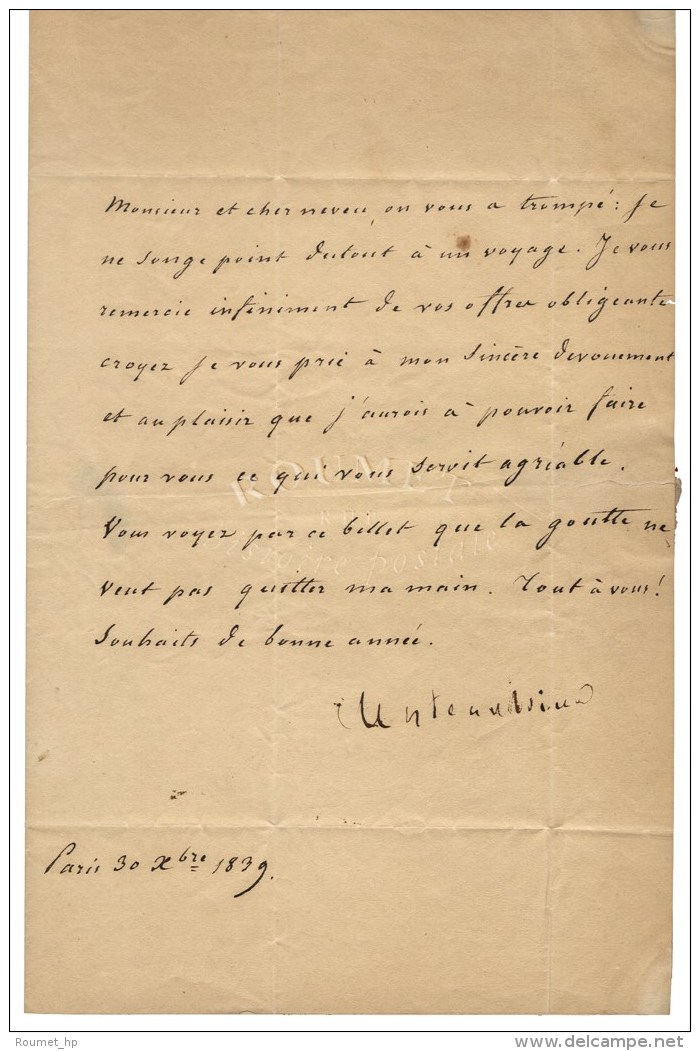 Monsieur et cher neveu, on vous a trompé : Je
ne songe point dutout à un voyage. Je vous
remercie infiniment de vos offres obligeante
croyez je vous prie à mon sincère devouement
et au plaisir que j'aurois à pouvoir faire
pour vous ce qui vous seroit agréable.
Vous voyez par ce billet que la goutte ne
veut pas quitter ma main. Tout à vous!
Souhaits de bonne année.
Paris 30 Xbre 1839.
ROUMET
Histoire postale
Roumet_hp
www.delcampe.net